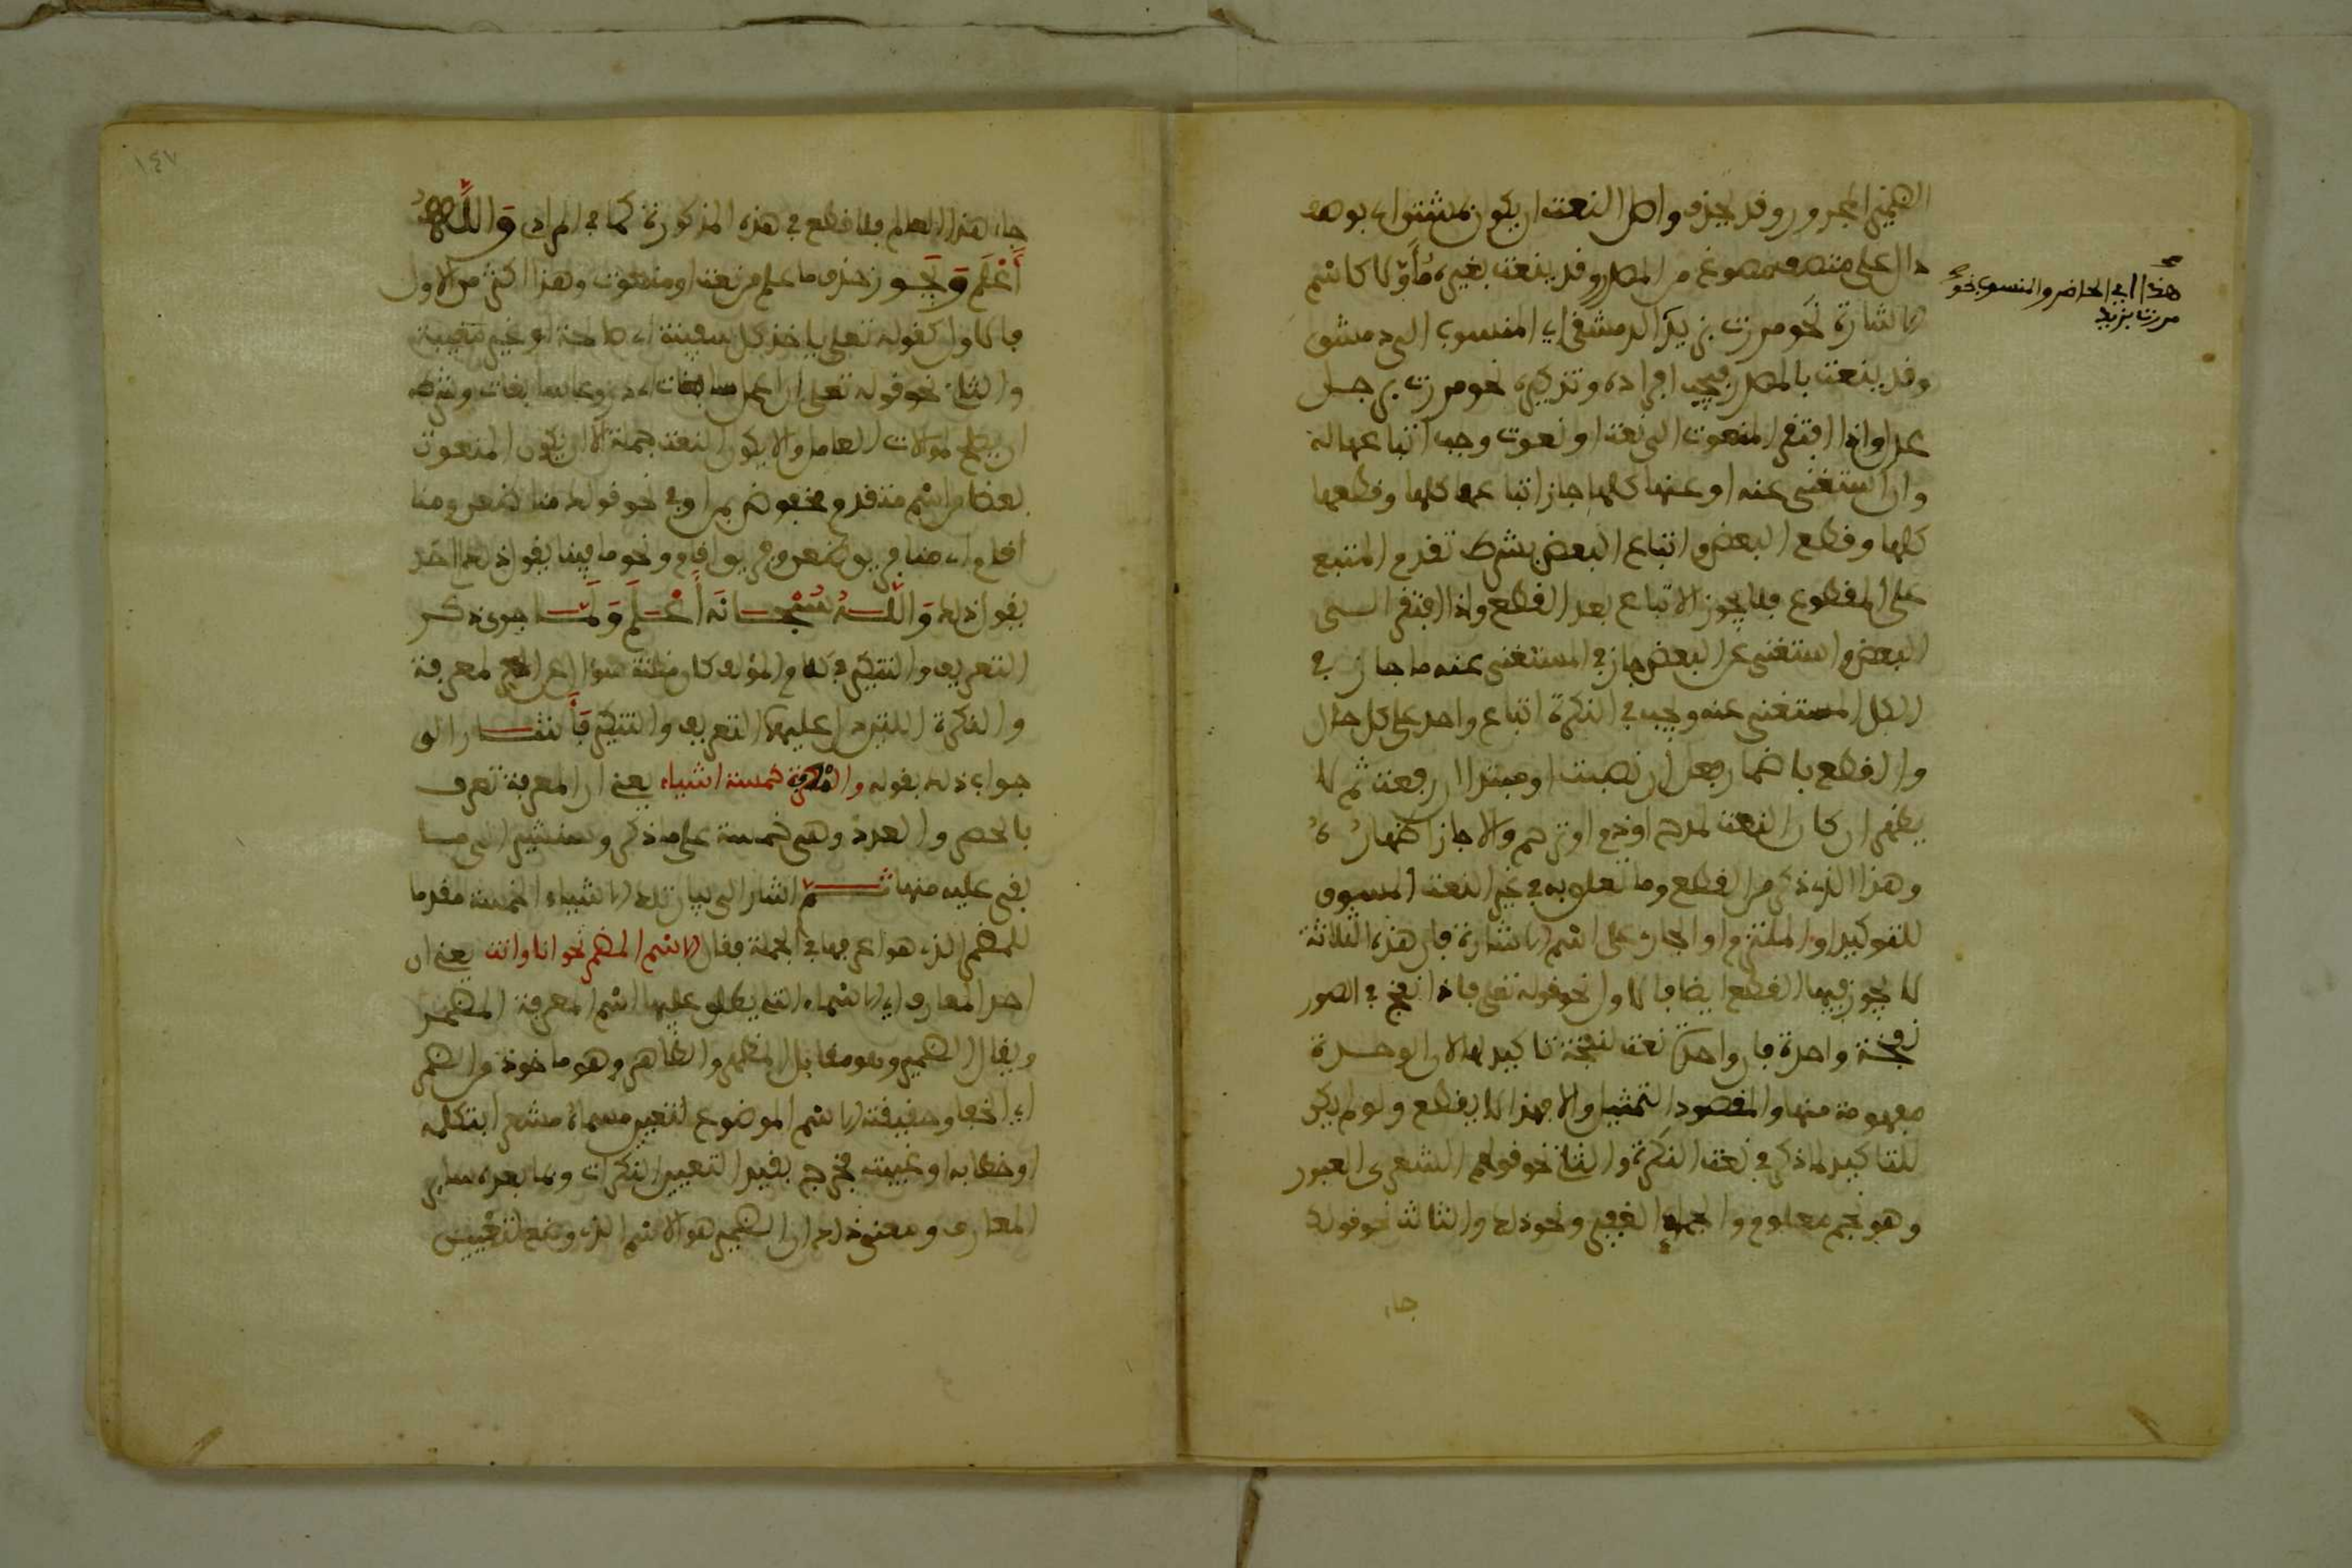 الضمير المجرور وقد يحذف واصل النعت ان يكون بمشتق اي بوصف
دال على متصف مصوغ من المصدر وقد ينعت بغيره مأولا كاسم
الاشارة نحو مررت بزيد الدمشقي اي المنسوب الى دمشق
وقد ينعت بالمصدر فيجب افراده وتذكيره نحو مررت برجل
عدل واذا افتقر المنعوت الى نعت او نعوت وجب اتباعها له
وان استغنى عنه او عنها كلها جاز اتباعها كلها وقطعها
كلها وقطع البعض واتباع البعض بشرط تقدم المتبع
على المقطوع فلا يجوز الاتباع بعد القطع واذا افتقر الى
البعض واستغنى عن البعض جاز في المستغنى عنه ما جاز في
الكل المستغنى عنه ويجب في النكرة اتباع واحد على كل حال
والقطع باضمار فعل ان نصبت او مبتدا ان رفعت ثم لا
يظهر ان كان النعت لمدح او ذم او ترحم والا جاز اظهاره
وهذا الذي ذكر من القطع وما تعلق به في غير النعت المسوق
للتوكيد او الملتزم او الجاري على اسم الاشارة فان هذه الثلاثة
لا يجوز فيها القطع ايضا فالاول نحو قوله تعلى فاذا نفخ في الصور
نفخة واحدة فان واحدة نعت لنفخة تاكيد لها لان الوحدة
مفهومة منها والمقصود التمثيل والا فهذا لا يقطع ولو لم يكن
للتاكيد لما ذكر في نعت النكرة والثاني نحو قولهم الشعرى العبور
وهو نجم معلوم والجماء الغفير ونحو ذلك والثالث نحو قولك
جاء
هذا اي الحاضر والمنسوب نحو
مررت بزيد
١٤٧
جاء هذا العالم فلا قطع في هذه المذكورة كما في المرادي وَاللَّهُ
أَعْلَم وَيَجُوز حذف ما علم من نعت او منعوت وهذا اكثر من الاول
فالاول كقوله تعلى ياخذ كل سفينة اي صالحة او غير معيبة
والثاني نحو قوله تعلى ان اعمل سابغات اي دروعا سابغات وشرطه
ان يصلح لموالات العامل والا يكون النعت جملة الا ان يكون المنعوت
بعضا من اسم متقدم مخفوض بمن او في نحو قولهم منا ظعن ومنا
اقام اي منا فريق ظعن وفريق اقام ونحو ما فينا يقول ذلك اي احد
يقول ذلك وَاللَّه سُبْحَانَهُ أَعْلَم وَلَمَّا جرى ذكر
التعريف والتنكير في كلام المؤلف كان مظنة سؤال عن المعرفة
والنكرة اللتين عليهما التعريف والتنكير فَأَشَار الى
جواب ذلك بقوله والمعرفة خمسة اشياء يعني ان المعرفة تعرف
بالحصر والعدد وهي خمسة على ما ذكر وسنشير الى ما
بقي عليه منها ثُمَّ اشار الى بيان تلك الاشياء الخمسة مقدما
للمضمر الذي هو اعرفها في الجملة فقال الاسم المضمر نحو انا وانت يعني ان
احد المعارف اي الاسماء التي يطلق عليها اسم المعرفة المضمر
ويقال الضمير وهو مقابل المظهر والظاهر وهو ماخوذ من الضمير
اي الخفا وحقيقته الاسم الموضوع لتعيين مسماه مشعرا بتكلمه
او خطابه او غيبته فخرج بقيد التعيين النكرات وما بعده ساير
المعارف ومعنى ذلك ان الضمير هو الاسم الذي وضع لتعيين